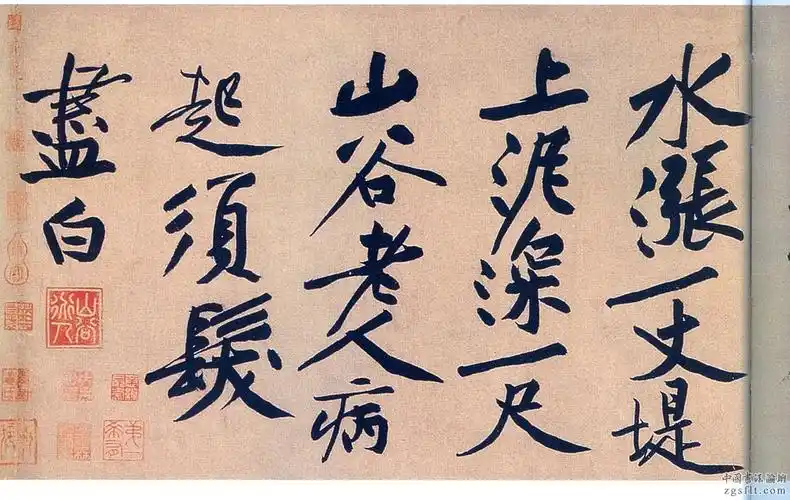 水漲一丈堤
上泥深一尺
山谷老人病
起須髮
盡白
中国书法论坛
zgsflt.com